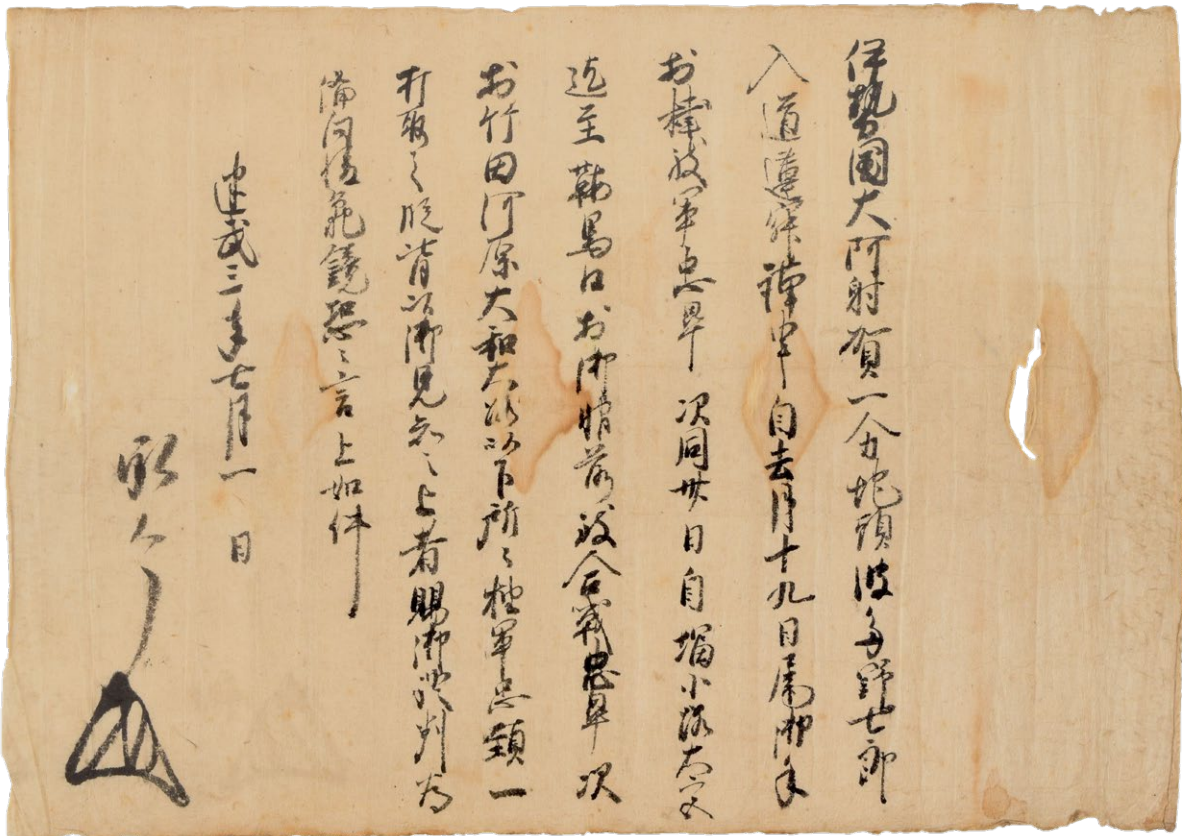 伊勢国大阿射賀一分地頭波多野七郎
入道蓮寂謹申自去月十九日属御手
於 致軍忠畢次同卅日自堀小路大宮
迄至鞍馬口於御 前致合戦忠畢次
於竹田河原大和大路以下所々 軍忠頸一
打取之段皆以御見知之上者賜御証判為
備向後亀鏡恐々言上如件
建武三年七月一日
承了